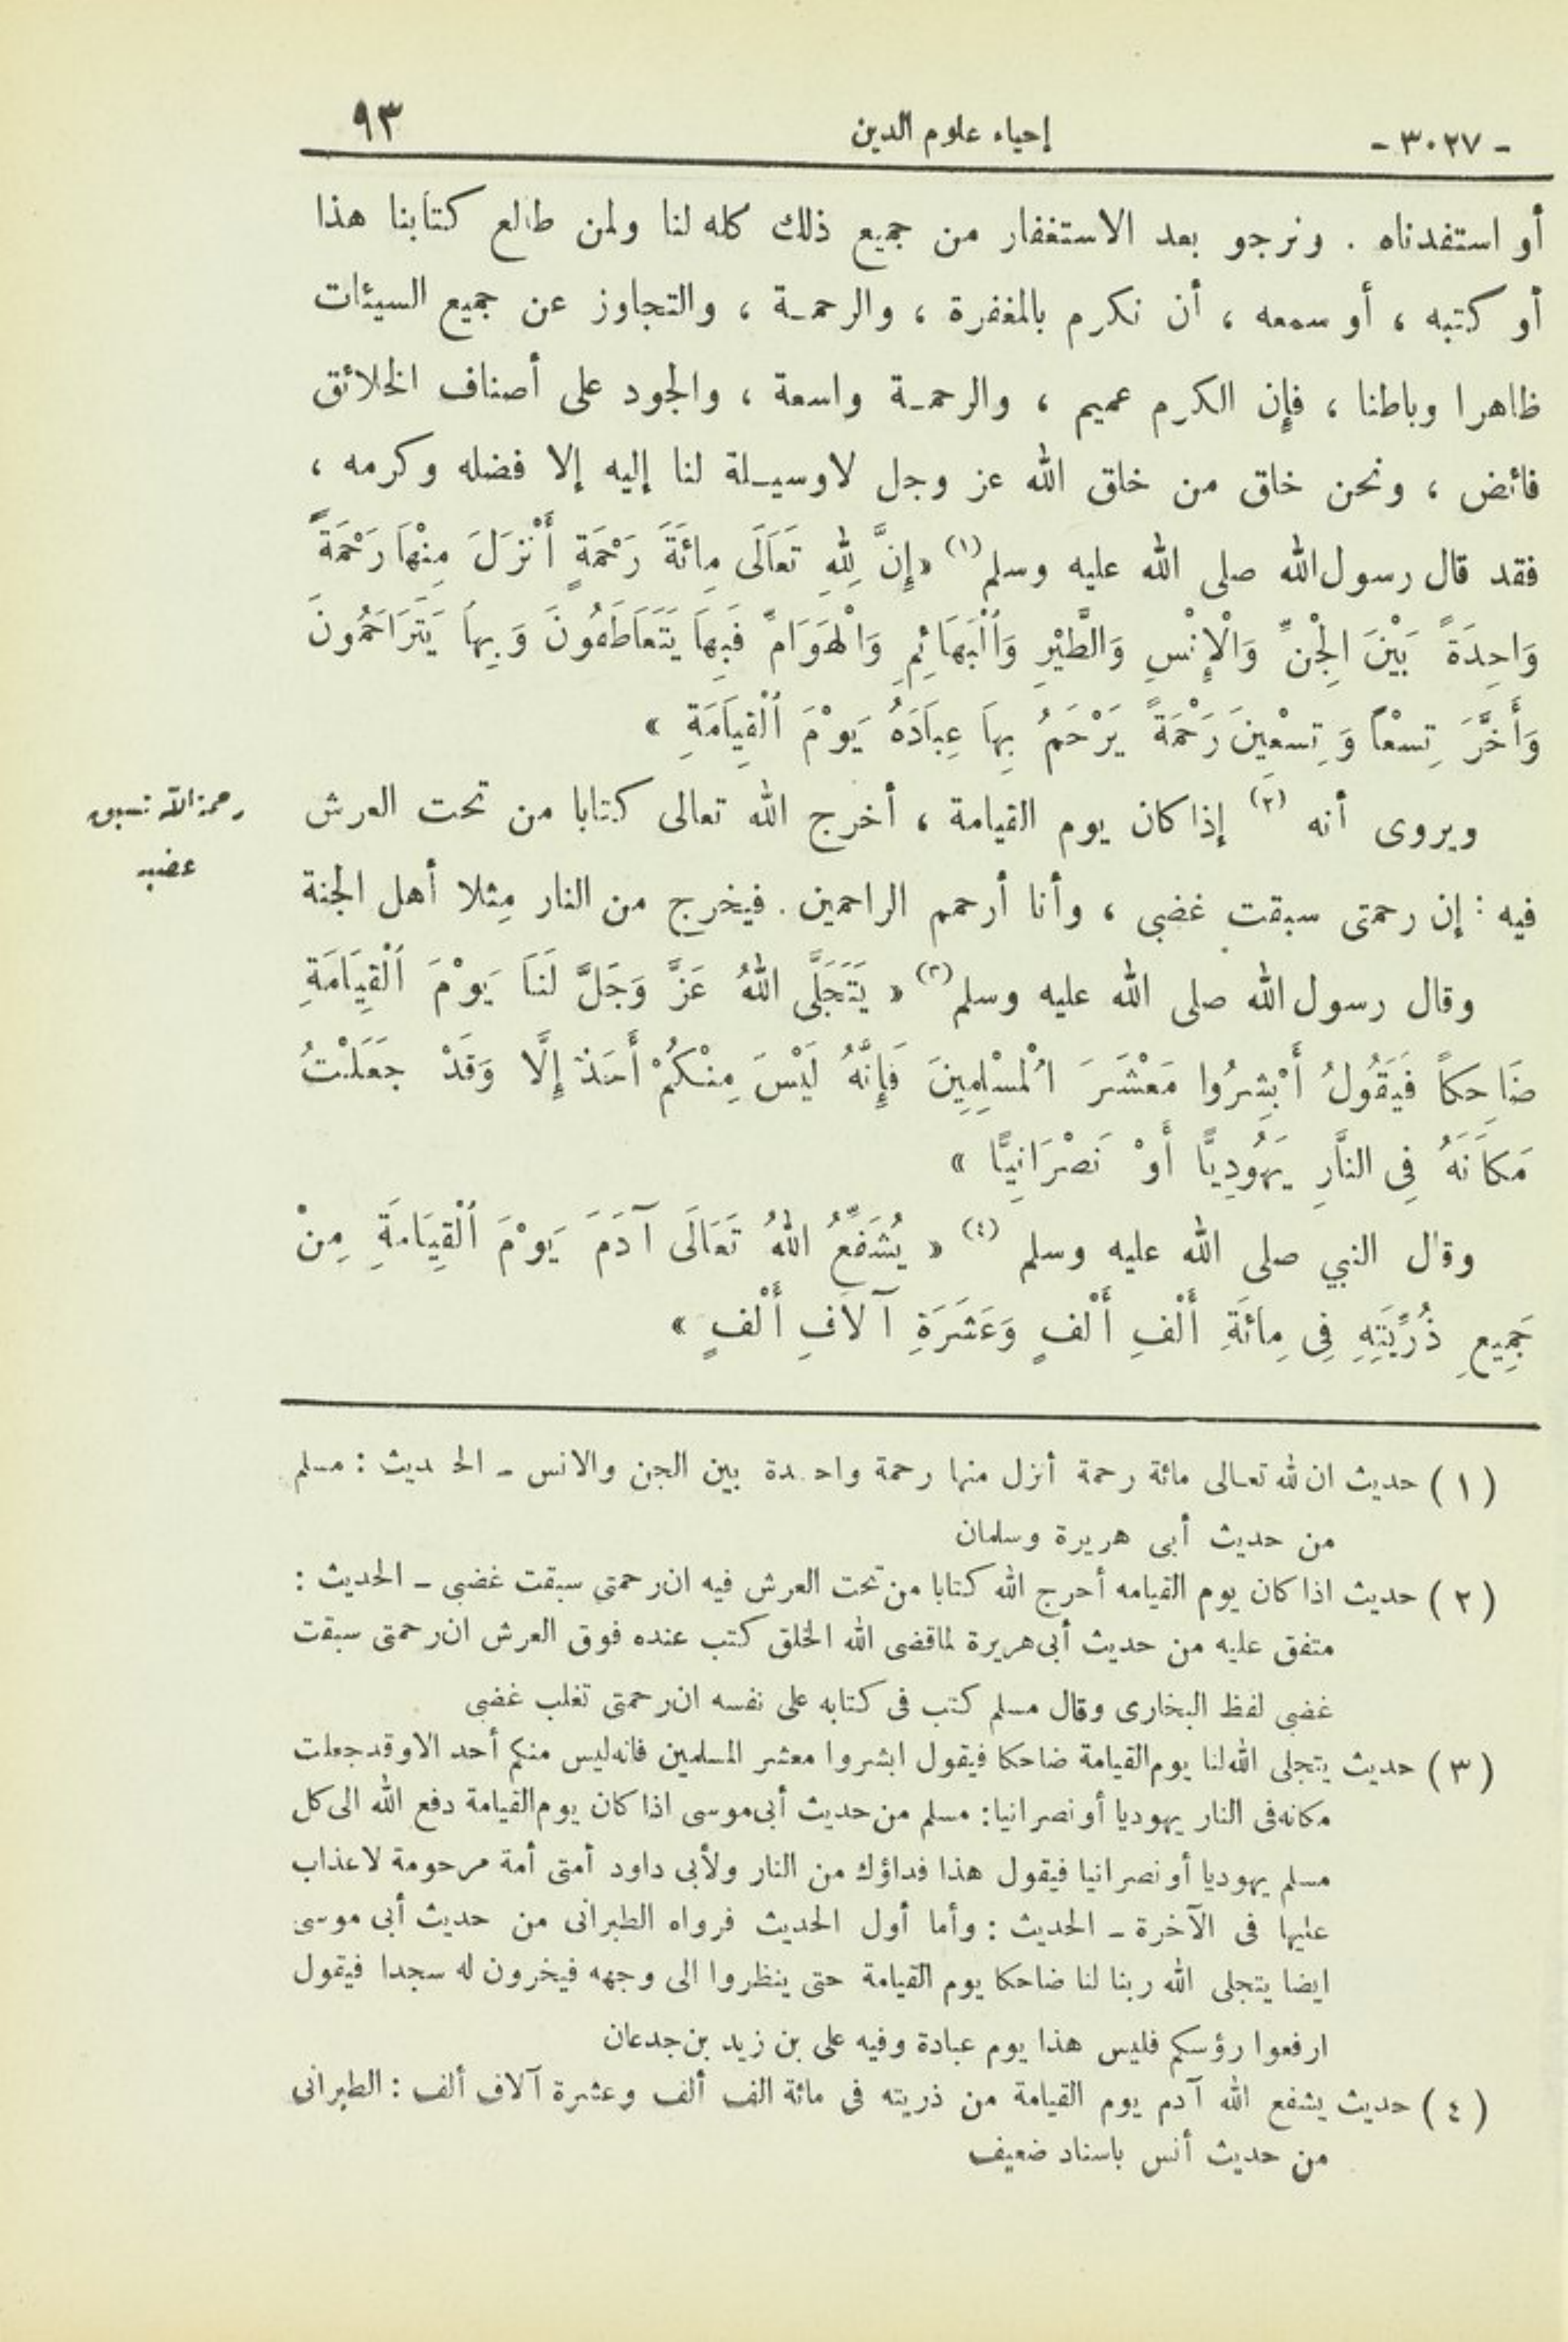 - ٣٠٢٧ - إحياء علوم الدين ٩٣
أو استفدناه . ونرجو بعد الاستغفار من جميع ذلك كله لنا ولمن طالع كتابنا هذا
أو كتبه ، أو سمعه ، أن نكرم بالمغفرة ، والرحمة ، والتجاوز عن جميع السيئات
ظاهرا وباطنا ، فإن الكرم عميم ، والرحمة واسعة ، والجود على أصناف الخلائق
فائض ، ونحن خلق من خلق الله عز وجل لاوسيلة لنا إليه إلا فضله وكرمه ،
فقد قال رسول الله صلى الله عليه وسلم (١) «إِنَّ لِلهِ تَعَالَى مِائَةَ رَحْمَةٍ أَنْزَلَ مِنْهَا رَحْمَةً
وَاحِدَةً بَيْنَ الْجِنِّ وَالْإِنْسِ وَالطَّيْرِ وَالْبَهَائِمِ وَالْهَوَامِّ فَبِهَا يَتَعَاطَفُونَ وَبِهَا يَتَرَاحَمُونَ
وَأَخَّرَ تِسْعاً وَتِسْعِينَ رَحْمَةً يَرْحَمُ بِهَا عِبَادَهُ يَوْمَ الْقِيَامَةِ »
ويروى أنه (٢) إذا كان يوم القيامة ، أخرج الله تعالى كتابا من تحت العرش
رحمة الله تسبق
غضبه
فيه : إن رحمتى سبقت غضبى ، وأنا أرحم الراحمين . فيخرج من النار مِثلا أهل الجنة
وقال رسول الله صلى الله عليه وسلم (٣) « يَتَجَلَّى اللهُ عَزَّ وَجَلَّ لَنَا يَوْمَ الْقِيَامَةِ
ضَاحِكاً فَيَقُولُ أَبْشِرُوا مَعْشَرَ الْمُسْلِمِينَ فَإِنَّهُ لَيْسَ مِنْكُمْ أَحَدٌ إِلَّا وَقَدْ جَعَلْتُ
مَكَانَهُ فِى النَّارِ يَهُودِيًّا أَوْ نَصْرَانِيًّا »
وقال النبي صلى الله عليه وسلم (٤) « يُشَفِّعُ اللهُ تَعَالَى آدَمَ يَوْمَ الْقِيَامَةِ مِنْ
جَمِيعِ ذُرِّيَّتِهِ فِى مِائَةِ أَلْفِ أَلْفٍ وَعَشَرَةِ آلَافِ أَلْفٍ »
( ١ ) حديث ان لله تعالى مائة رحمة أنزل منها رحمة واحدة بين الجن والانس ــ الحديث : مسلم
من حديث أبى هريرة وسلمان
( ٢ ) حديث اذا كان يوم القيامه أخرج الله كتابا من تحت العرش فيه ان رحمتي سبقت غضبى ــ الحديث :
متفق عليه من حديث أبى هريرة لما قضى الله الخلق كتب عنده فوق العرش ان رحمتى سبقت
غضبى لفظ البخارى وقال مسلم كتب فى كتابه على نفسه ان رحمتى تغلب غضبى
( ٣ ) حديث يتجلى الله لنا يوم القيامة ضاحكا فيقول ابشروا معشر المسلمين فانه ليس منكم أحد الا وقد جعلت
مكانه فى النار يهوديا أو نصرانيا: مسلم من حديث أبى موسى اذا كان يوم القيامة دفع الله الى كل
مسلم يهوديا أو نصرانيا فيقول هذا فداؤك من النار ولأبى داود أمتى أمة مرحومة لا عذاب
عليها فى الآخرة ــ الحديث : وأما أول الحديث فرواه الطبرانى من حديث أبى موسى
ايضا يتجلى الله ربنا لنا ضاحكا يوم القيامة حتى ينظروا الى وجهه فيخرون له سجدا فيقول
ارفعوا رؤسكم فليس هذا يوم عبادة وفيه على بن زيد بن جدعان
( ٤ ) حديث يشفع الله آدم يوم القيامة من ذريته فى مائة الف ألف وعشرة آلاف ألف : الطبرانى
من حديث أنس باسناد ضعيف